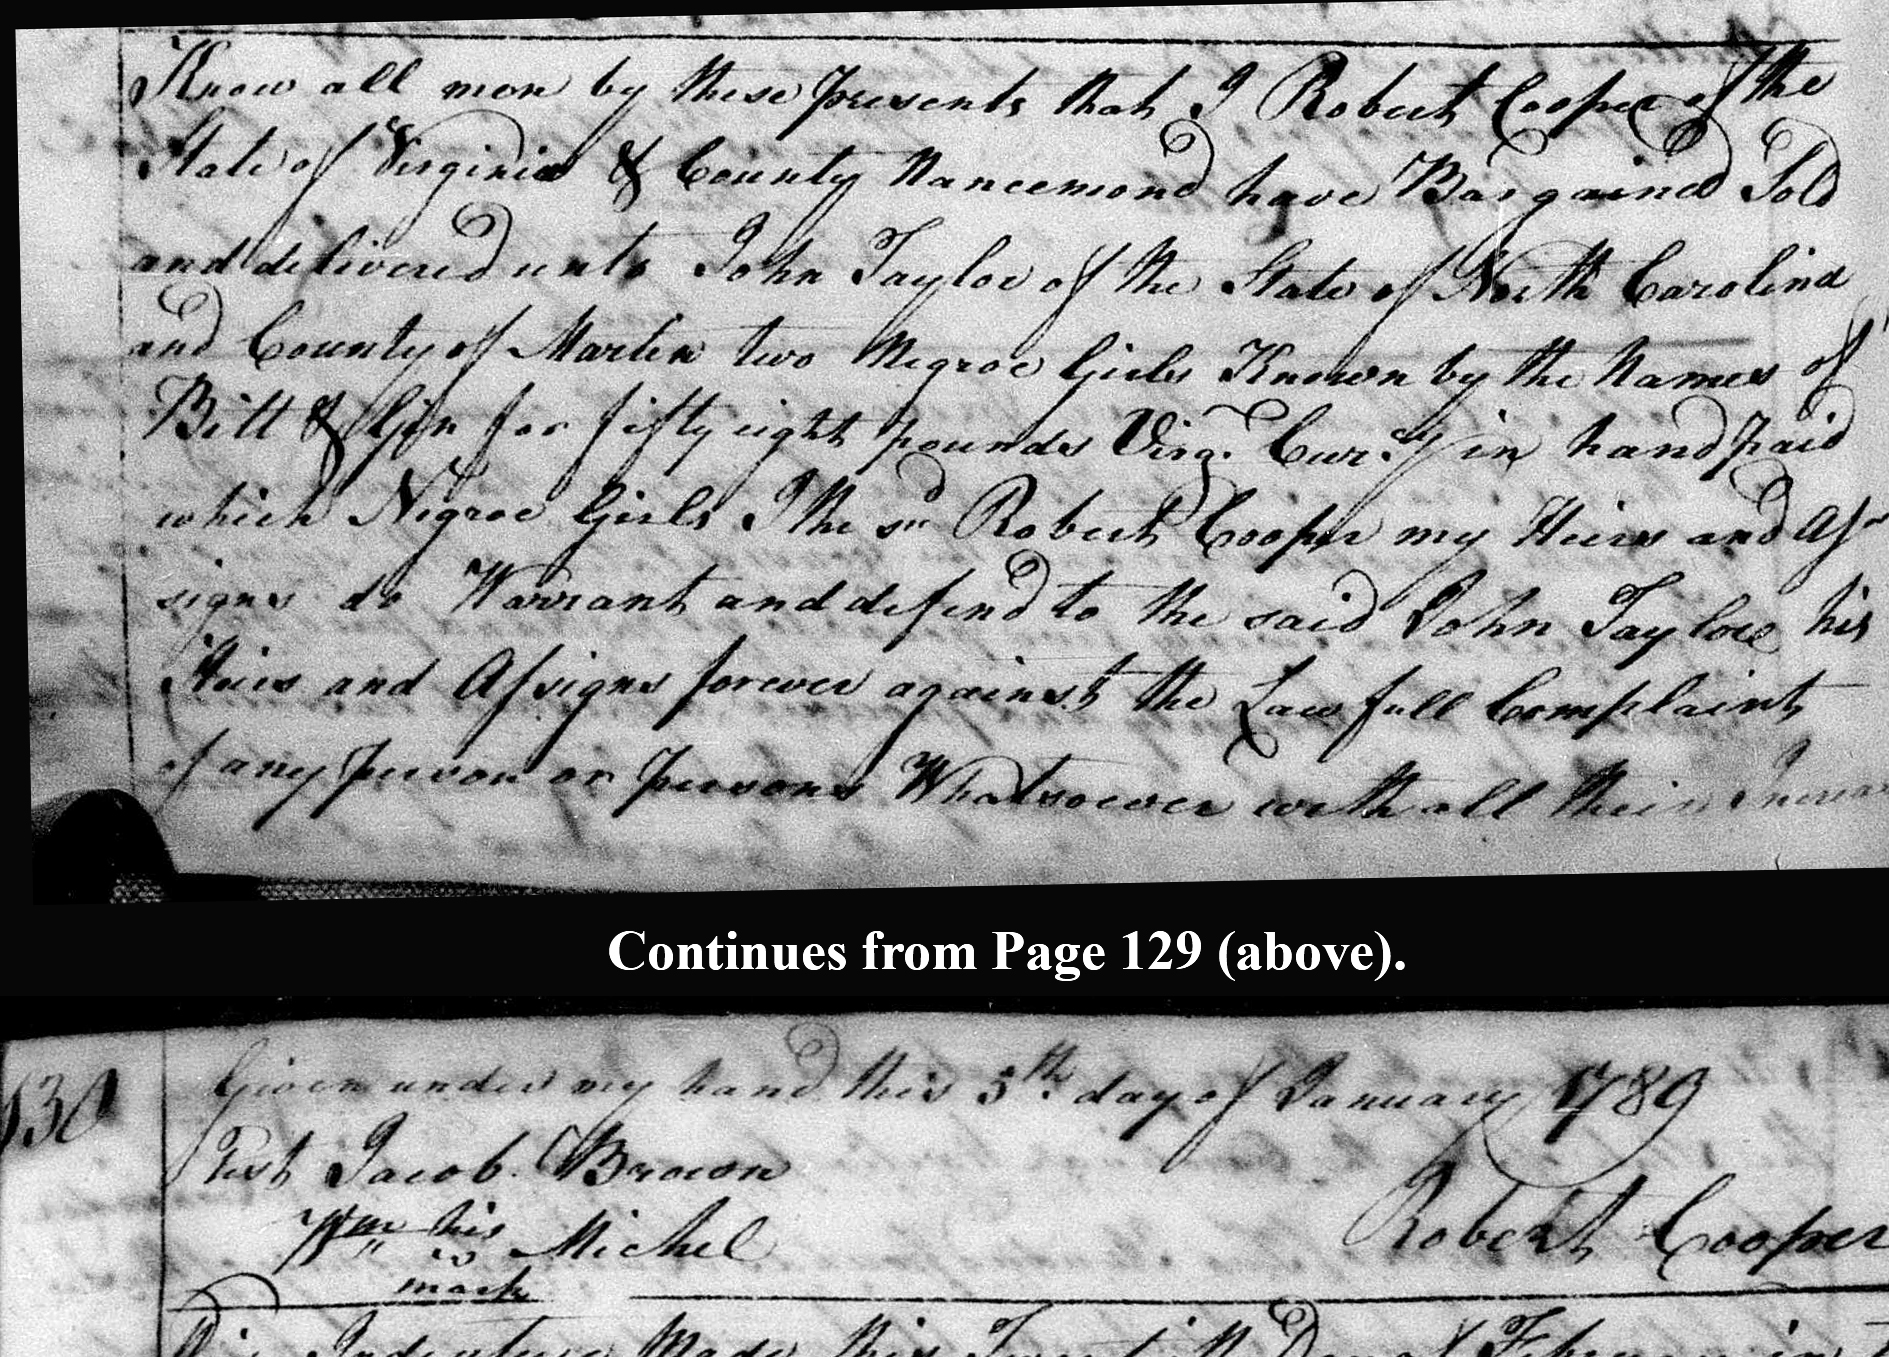 Know all men by these presents that I Robert Cooper of the
State of Virginia & County Nancemond have Bargained Sold
and delivered unto John Taylor of the State of North Carolina
and County of Martin two Negroe Girls Known by the Names of
Bitt & Gin for fifty eight pounds Virg. Cur.cy in hand paid
which Negroe Girls I the sd Robert Cooper my Heirs and As-
signs do Warrant and defend to the said John Taylor his
Heirs and Assigns forever against the Lawfull Complaint
of any person or persons Whatsoever with all their
Continues from Page 129 (above).
130
Given under my hand this 5th. day of January 1789
Test Jacob Brown
Wm his Michel
Robert Cooper
mark
Indenture Made this Day of